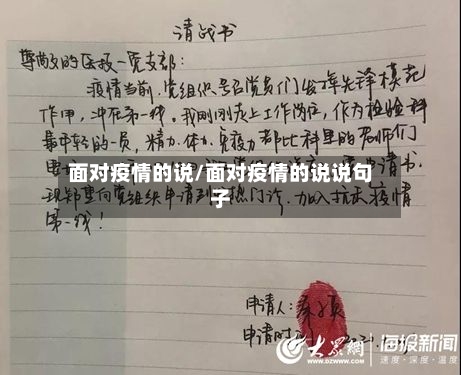 请战书
尊敬的医技一党支部：
疫情当前，党组织号召党员们发挥先锋模范
作用，冲在第一线。我刚刚走上工作岗位，作为检验科
最年轻的一员，精力、体力、免疫力都比科里的老师们
面对疫情的说/面对疫情的说说句
子
请书，
现郑重向党组织申请到 热门诊，加入抗击疫情
第一线！
申请人：
申请时
大众网 海报新闻
速度·深度·温度